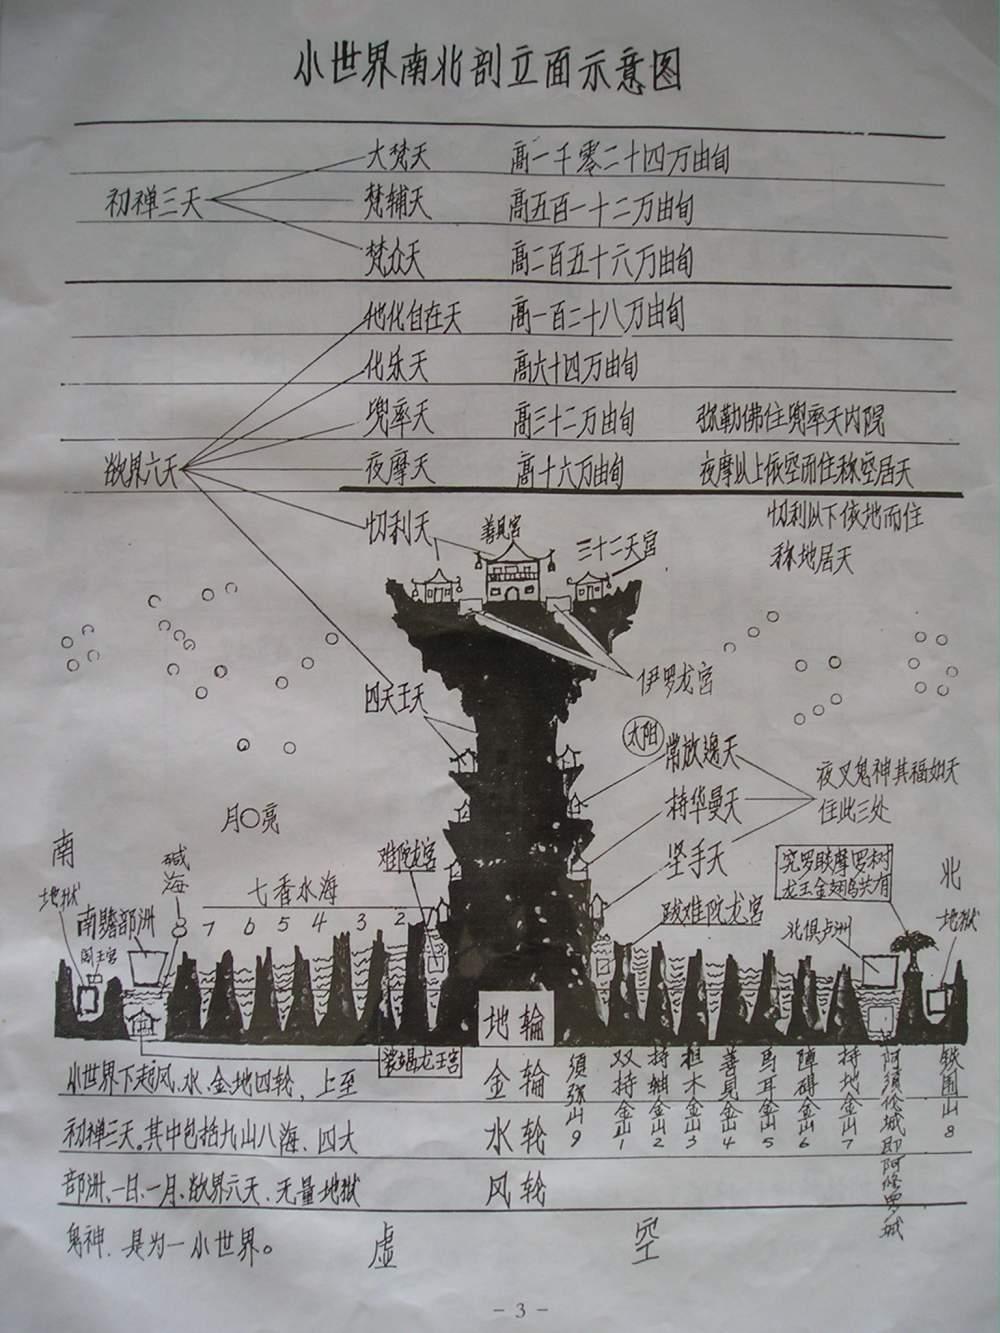 小世界南北剖立面示意图
初禅三天
大梵天 高一千零二十四万由旬
梵辅天 高五百一十二万由旬
梵众天 高二百五十六万由旬
欲界六天
他化自在天 高一百二十八万由旬
化乐天 高六十四万由旬
兜率天 高三十二万由旬 弥勒佛住兜率天内院
夜摩天 高十六万由旬 夜摩以上依空而住称空居天
忉利天 善见宫 三十二天宫
忉利以下依地而住
称地居天
伊罗龙宫
四天王天
太阳
常放逸天
持华曼天
坚手天
夜叉鬼神其福如天
住此三处
月亮
南
地狱
南贍部洲
阎王宫
碱海
8
七香水海
7 6 5 4 3 2
难陀龙宫
跋难陀龙宫
究罗睒摩罗树
龙王金翅鸟共有
北俱卢洲
北
地狱
娑竭龙王宫
地轮
金轮
水轮
风轮
須弥山9
双持金山1
持轴金山2
担木金山3
善見金山4
馬耳金山5
障碍金山6
持地金山7
阿须伦城即阿修罗城
铁围山8
小世界下起风、水、金地四轮，上至
初禅三天。其中包括九山八海、四大
部洲、一日、一月、欲界六天、无量地狱
鬼神、是为一小世界。
虚 空
- 3 -